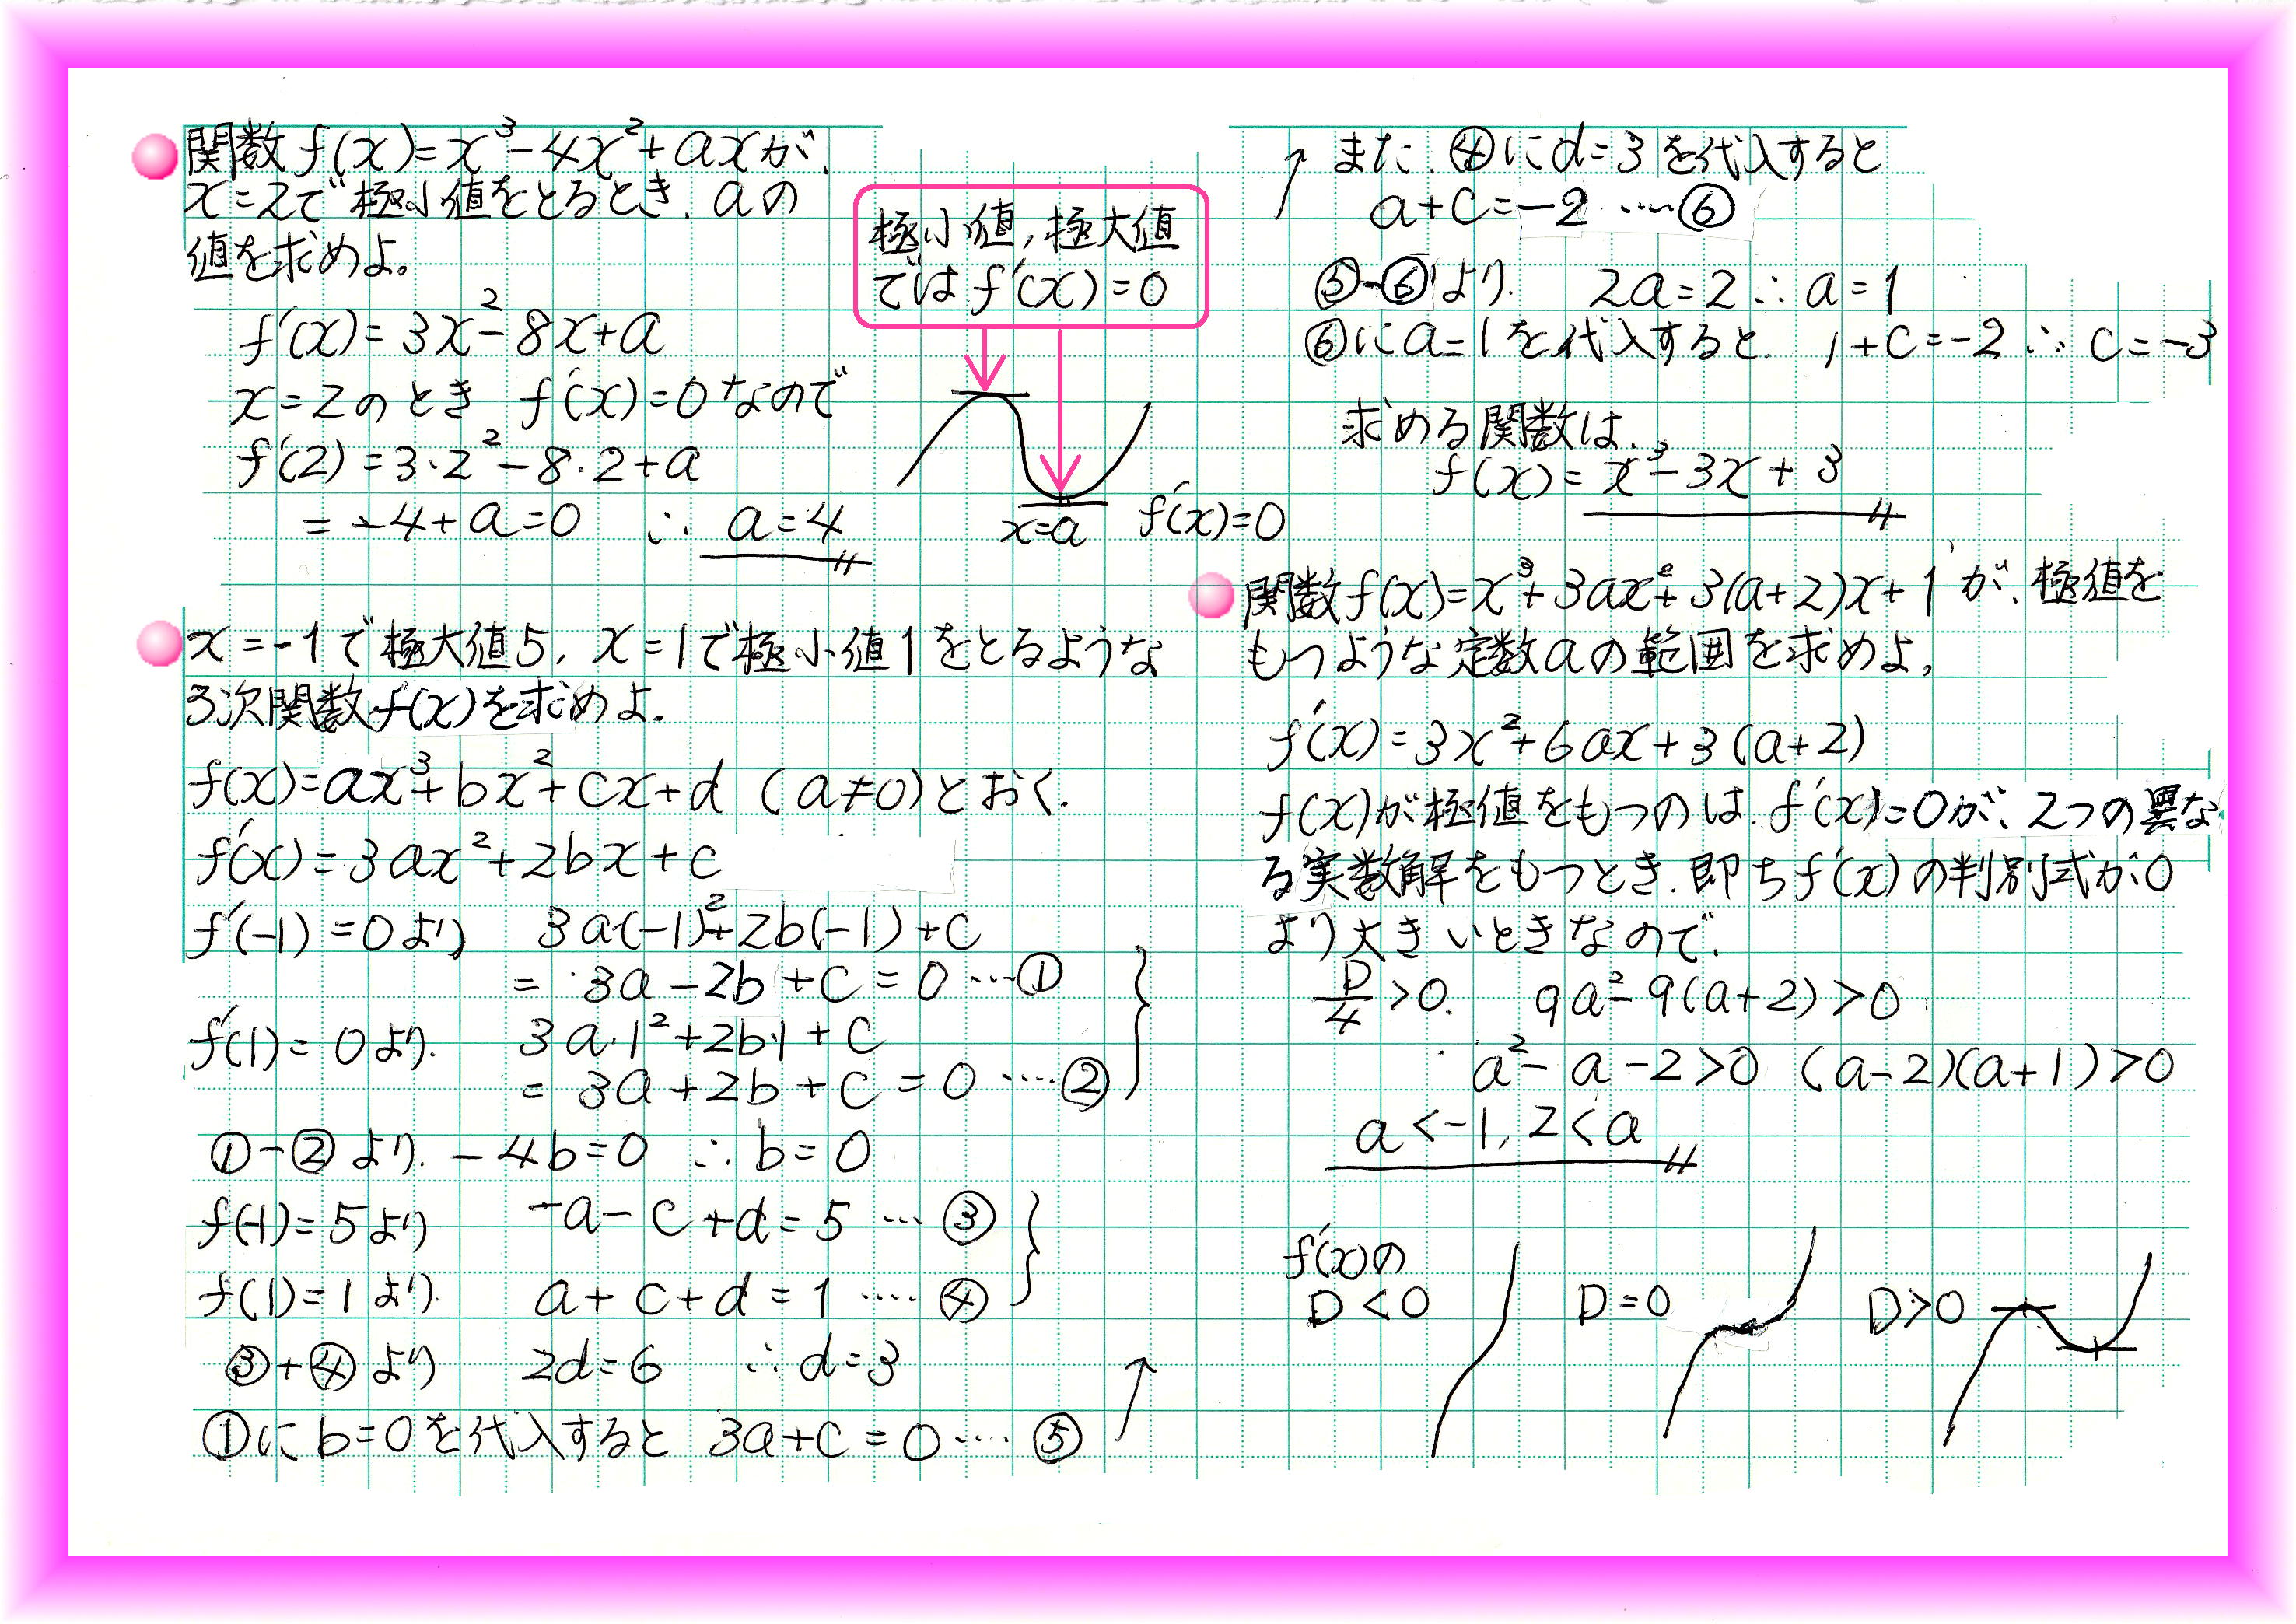 関数f(x)=x³-4x²+axが、
x=2で極小値をとるとき、aの
値を求めよ。
f'(x)=3x²-8x+a
x=2のとき f'(x)=0なので
f'(2)=3·2²-8·2+a
=-4+a=0 ∴ a=4
極小値,極大値
ではf'(x)=0
x=a f'(x)=0
x=-1で極大値5, x=1で極小値1をとるような
3次関数f(x)を求めよ.
f(x)=ax³+bx²+cx+d (a≠0)とおく.
f'(x)=3ax²+2bx+c
f'(-1)=0より 3a(-1)²+2b(-1)+c
=3a-2b+c=0…①
f'(1)=0より. 3a·1²+2b·1+c
=3a+2b+c=0…②
①-②より. -4b=0 ∴b=0
f(-1)=5より -a-c+d=5…③
f(1)=1より. a+c+d=1…④
③+④より 2d=6 ∴d=3
①にb=0を代入すると 3a+c=0…⑤
また、④にd=3を代入すると
a+c=-2…⑥
⑤-⑥より. 2a=2∴a=1
⑥にa=1を代入すると. 1+c=-2∴c=-3
求める関数は、
f(x)=x³-3x+3
関数f(x)=x³+3ax²+3(a+2)x+1が、極値を
もつような定数aの範囲を求めよ,
f'(x)=3x²+6ax+3(a+2)
f(x)が極値をもつのは.f'(x)=0が、2つの異な
る実数解をもつとき.即ちf'(x)の判別式が0
より大きいときなので、
D/4>0. 9a²-9(a+2)>0
a²-a-2>0 (a-2)(a+1)>0
a<-1, 2<a
f'(x)の
D<0 D=0 D>0